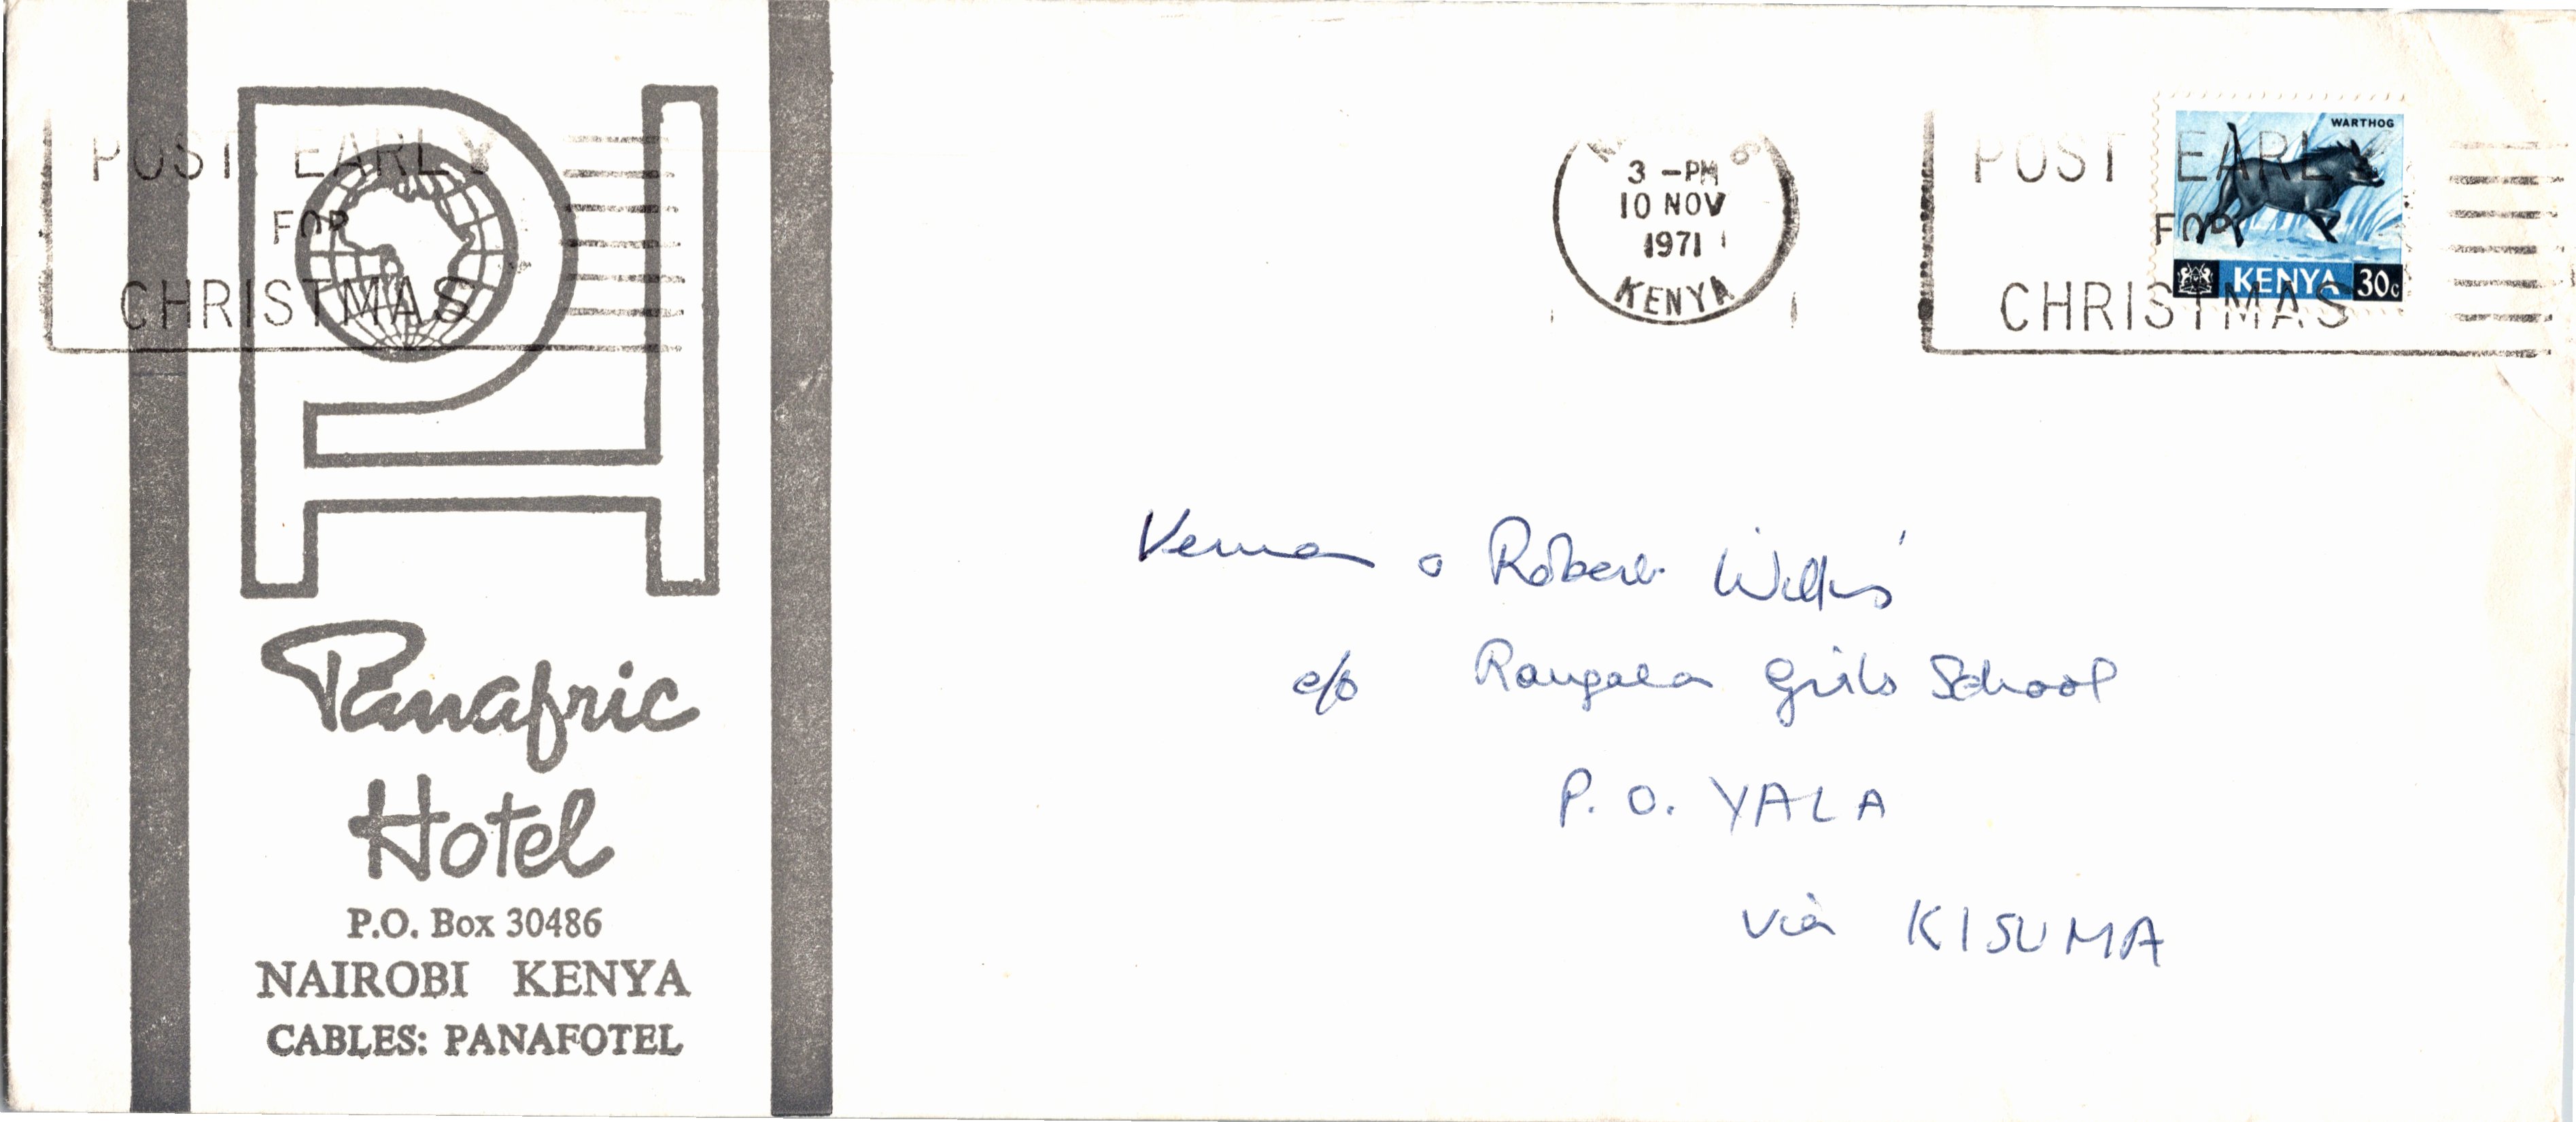 POST EARLY
FOR
CHRISTMAS
Panafric
Hotel
P.O. Box 30486
NAIROBI KENYA
CABLES: PANAFOTEL
3 -PM
10 NOV
1971
KENYA
POST EARLY
FOR
CHRISTMAS
WARTHOG
KENYA 30c
Robert
c/o Rangala Girls School
P. O. YALA
via KISUMA